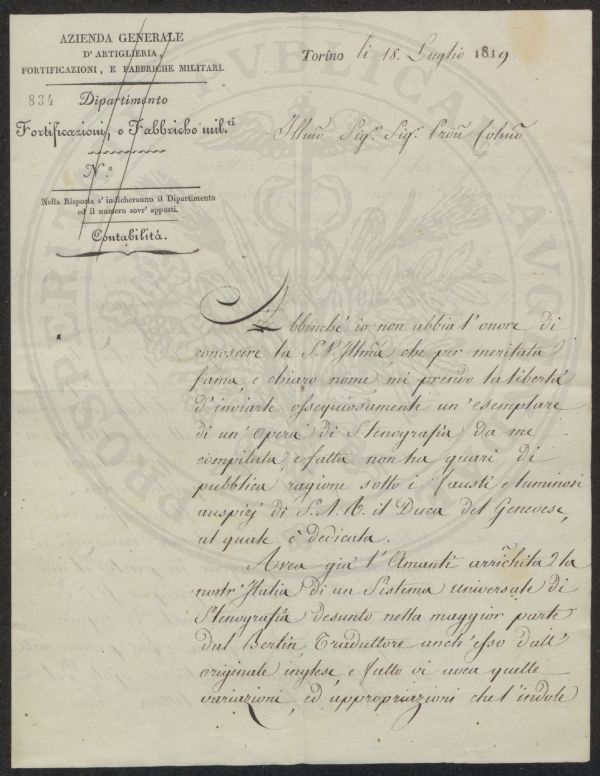 AZIENDA GENERALE
D'ARTIGLIERIA,
FORTIFICAZIONI, E FABBRICHE MILITARI.
834 Dipartimento
Fortificazioni, e Fabbriche mil.ri
N.º
Nella Risposta s'indicheranno il Dipartimento
ed il numero sovr'apposti.
Contabilità.
Torino li 18. Luglio 1819
Illmo Sigr. Sigr. Pron Colmo
Abbenché io non abbia l'onore di
conoscere la S. V. Illma che per meritata
fama, e chiaro nome mi prendo la libertà
d'inviarle ossequiosamente un'esemplare
di un'Opera di Stenografia da me
compilata e fatta non ha guari di
pubblica ragione sotto i fausti e luminosi
auspicj di S. A. R. il Duca del Genevese,
al quale è dedicata.
Avea già l'Amanti arricchita la
nostr'Italia di un Sistema universale di
Stenografia desunto nella maggior parte
dal Bertin, Traduttore anch'esso dall'
originale inglese, e fatto vi avea quelle
variazioni, ed appropriazioni che l'indole
PUBLICAE
PROSPERITATI
AUG